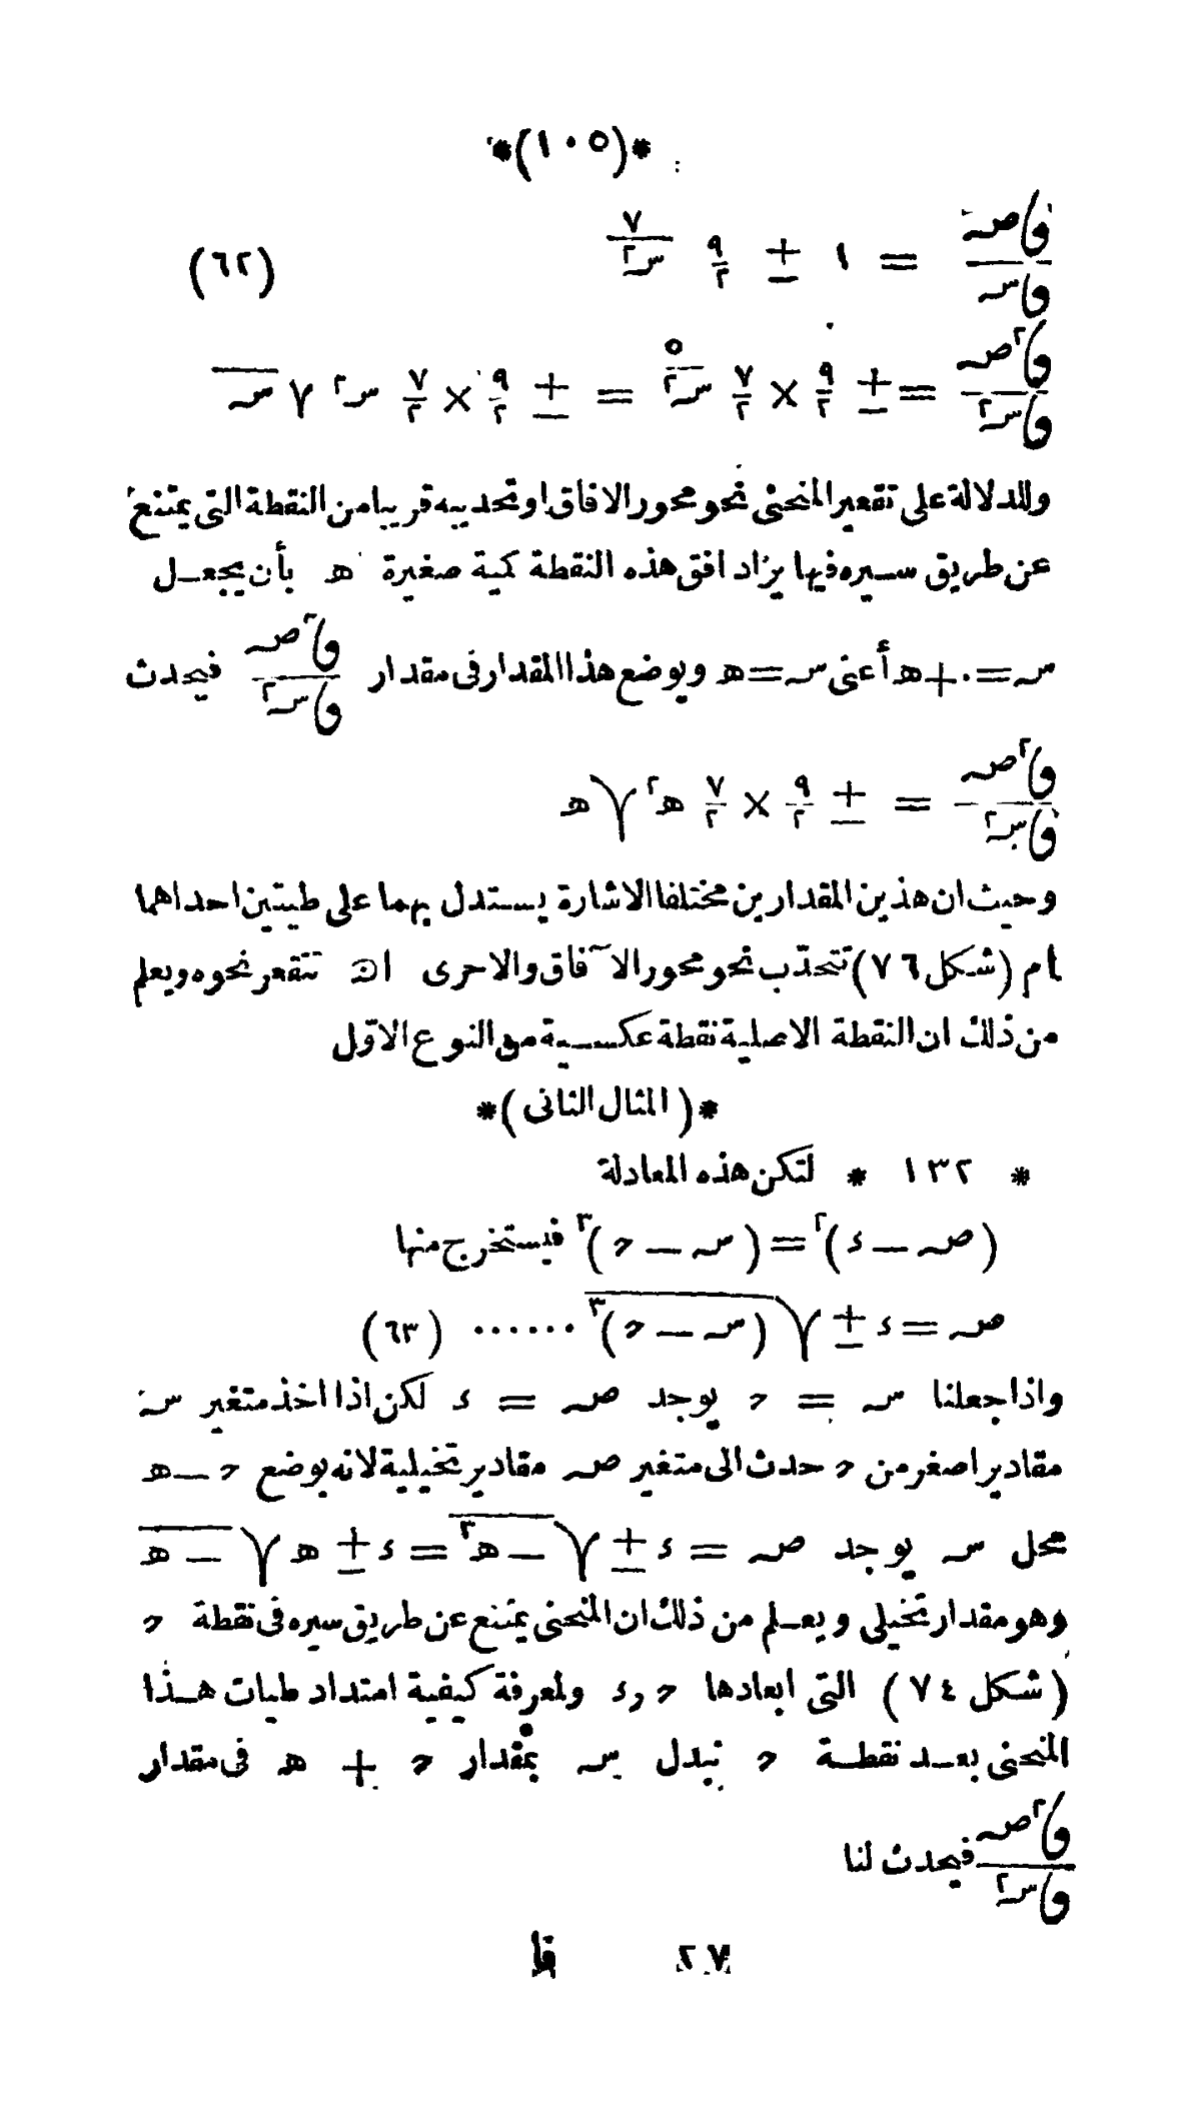 *(١٠٥)*
فا صـ / فا سـ = ١ ± ٩/٢ سـ ٧/٢ (٦٢)
فا٢ صـ / فا سـ٢ = ± ٩/٢ × ٧/٢ سـ ٥/٢ = ± ٩/٢ × ٧/٢ سـ٢ √سـ
وللدلالة على تقعير المنحنى نحو محور الافاق او تحديبه قريبا من النقطة التى يمتنع
عن طريق سيره فيها يزاد افق هذه النقطة كمية صغيرة ه بأن يجعل
سـ = ٠ + ه أعنى سـ = ه ويوضع هذا المقدار فى مقدار فا٢ صـ / فا سـ٢ فيحدث
فا٢ صـ / فا سـ٢ = ± ٩/٢ × ٧/٢ ه٢ √ه
وحيث ان هذين المقدارين مختلفا الاشارة يستدل بهما على طيتين احداهما
ام (شكل ٧٦) تتحدّب نحو محور الآفاق والاخرى ان تتقعر نحوه ويعلم
من ذلك ان النقطة الاصلية نقطة عكسية من النوع الاوّل
*(المثال الثانى)*
* ١٣٢ * لتكن هذه المعادلة
(صـ − ء)٢ = (سـ − ح)٣ فيستخرج منها
صـ = ء ± √(سـ − ح)٣ ...... (٦٣)
واذا جعلنا سـ = ح يوجد صـ = ء لكن اذا اخذ متغير سـ
مقادير اصغر من ح حدث الى متغير صـ مقادير تخيلية لانه بوضع ح − ه
محل سـ يوجد صـ = ء ± √−ه٣ = ء ± ه √−ه
وهو مقدار تخيلى ويعلم من ذلك ان المنحنى يمتنع عن طريق سيره فى نقطة ح
(شكل ٧٤) التى ابعادها ح و ء ولمعرفة كيفية امتداد طيات هذا
المنحنى بعد نقطة ح نبدل سـ بمقدار ح + ه فى مقدار
فا٢ صـ / فا سـ٢ فيحدث لنا
٢٧ فا